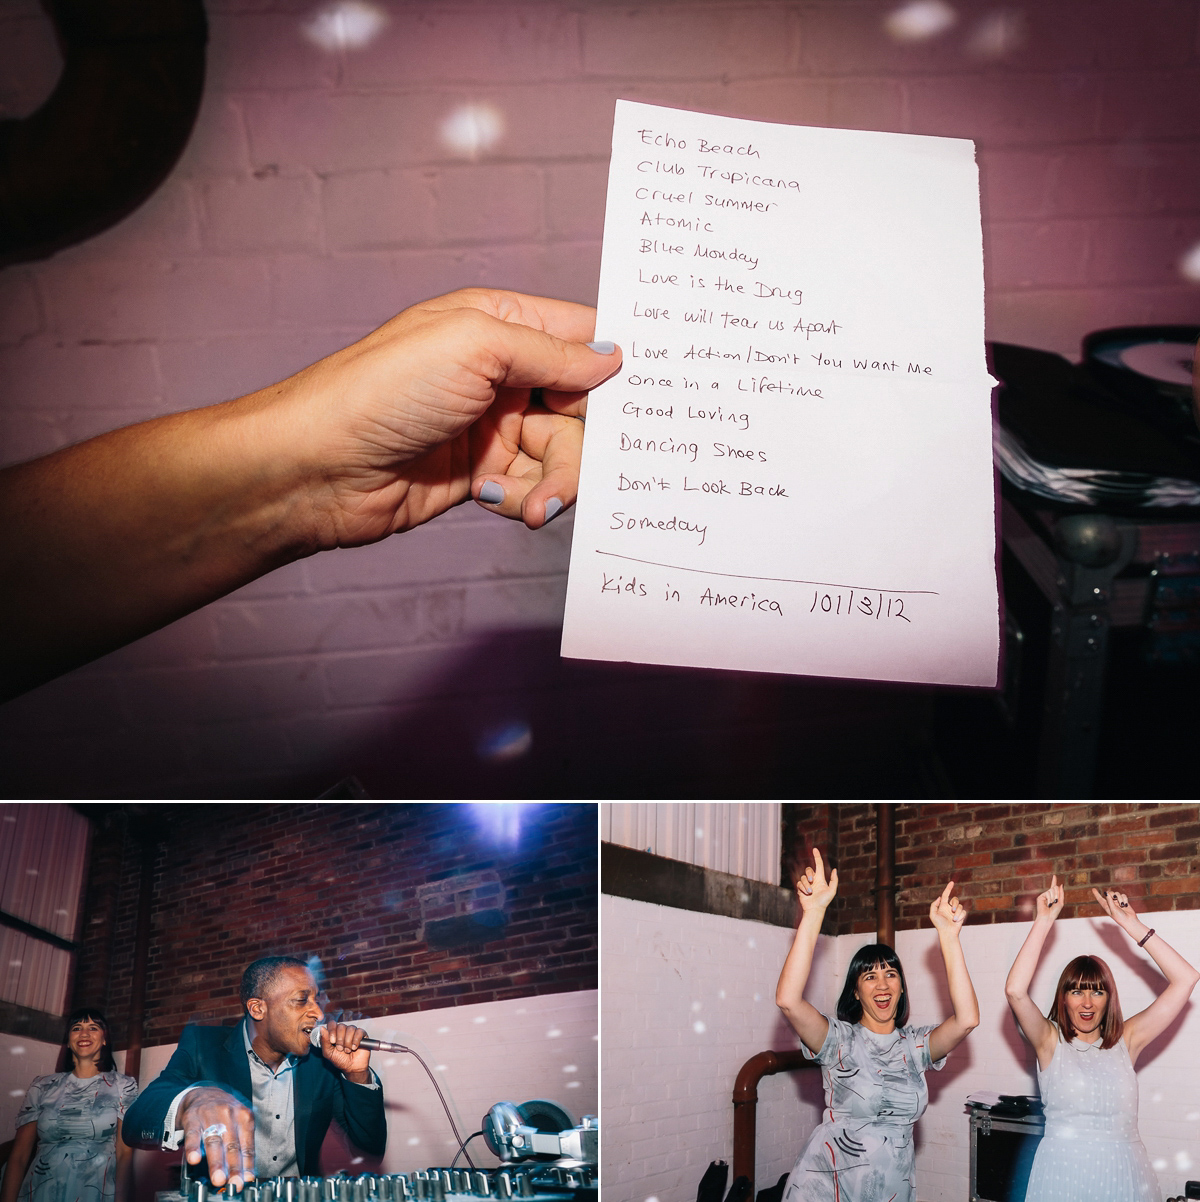 Echo Beach
Club Tropicana
Cruel Summer
Atomic
Blue Monday
Love is the Drug
Love will tear us Apart
Love Action/Don't You Want Me
Once in a Lifetime
Good Loving
Dancing Shoes
Don't Look Back
Someday
Kids in America 101/3/12